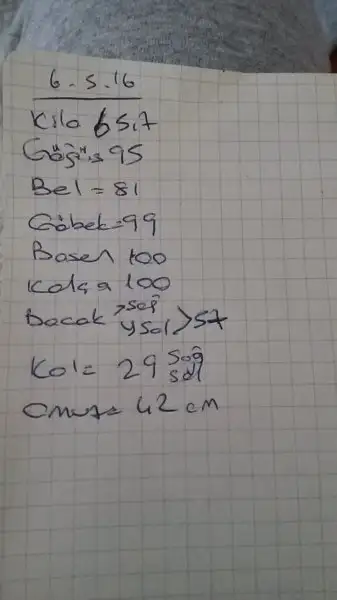 6.5.16
Kilo 65,7
Göğüs 95
Bel = 81
Göbek = 99
Basen 100
Kalça 100
Bacak > sağ
ysol > 57
Kol = 29 sağ
sol
Omuz = 42 cm